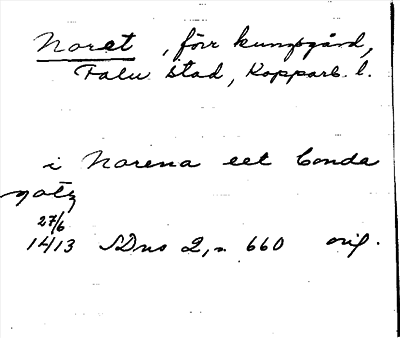 Noret, förr kungsgård,
Falu stad, Kopparb. l.
i Norena eet bonda
gotz
27/6
1413 SDns 2, n 660 orig.